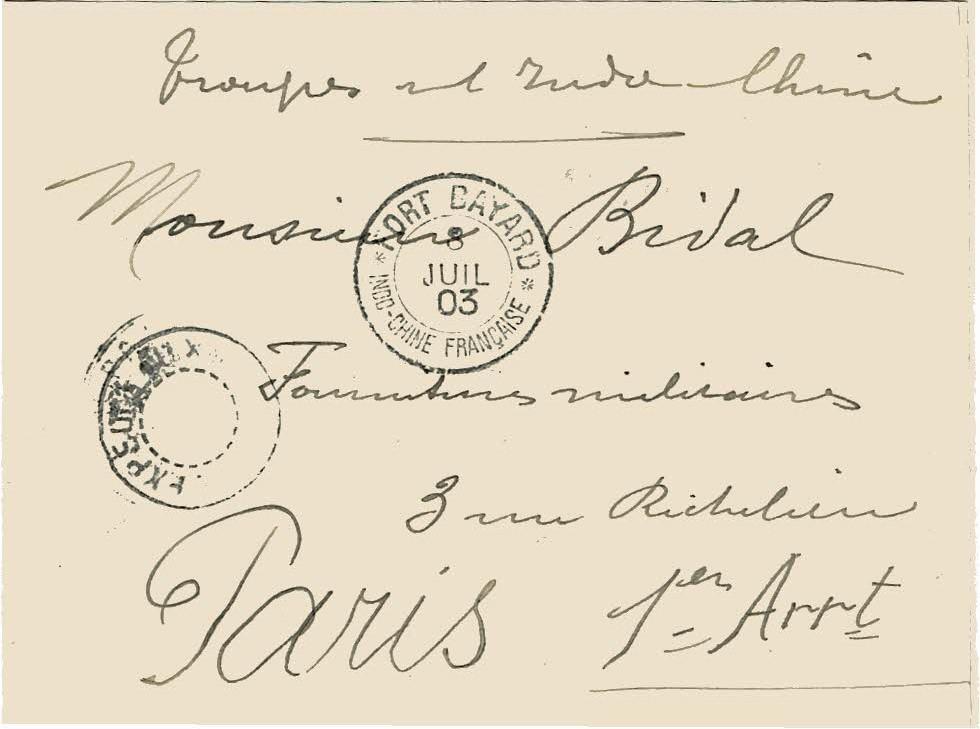 Troupes Indo-Chine
Monsieur Bidal
FORT BAYARD
8
JUIL
03
INDO-CHINE FRANÇAISE
Fournitures militaires
3 rue Richelieu
Paris 1er Arrt